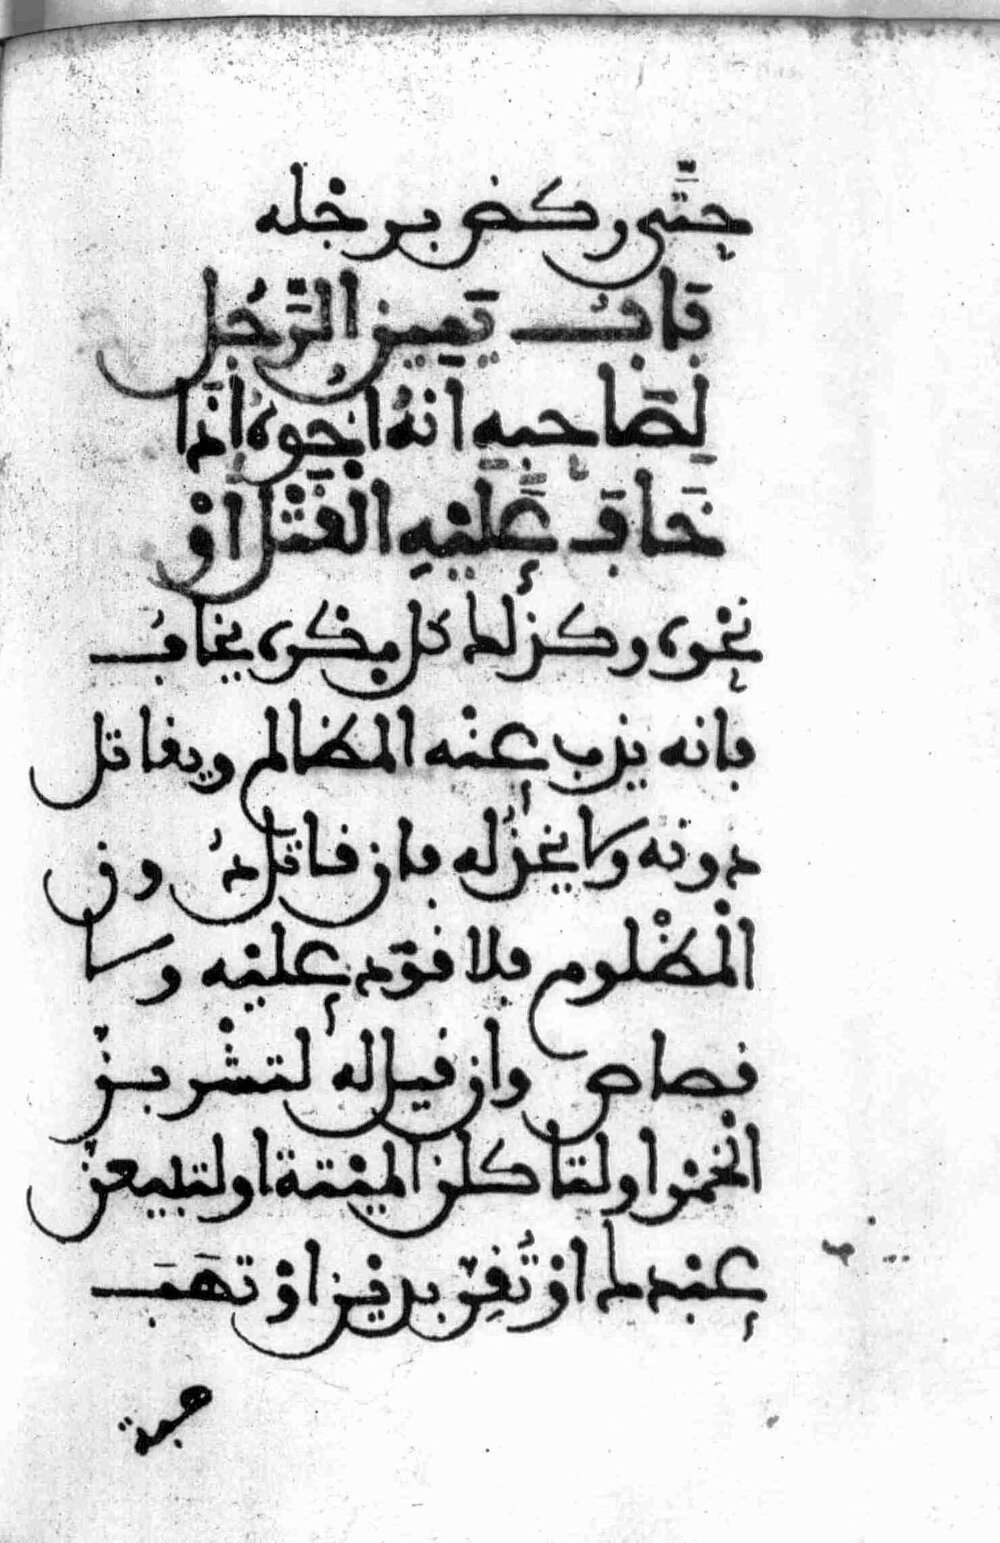 حتى ركض برجله
باب يمين الرجل
لصاحبه انه اخوه اذا
خاف عليه القتل او
نحوه وكذلك كل مكره يخاف
فانه يذب عنه المظالم ويقاتل
دونه ولا يخذله فان قاتل دون
المظلوم فلا قود عليه ولا
قصاص وان قيل له لتشربن
الخمر او لتاكلن الميتة او لتبيعن
عبدك او تقر بدين او تهب
هبة